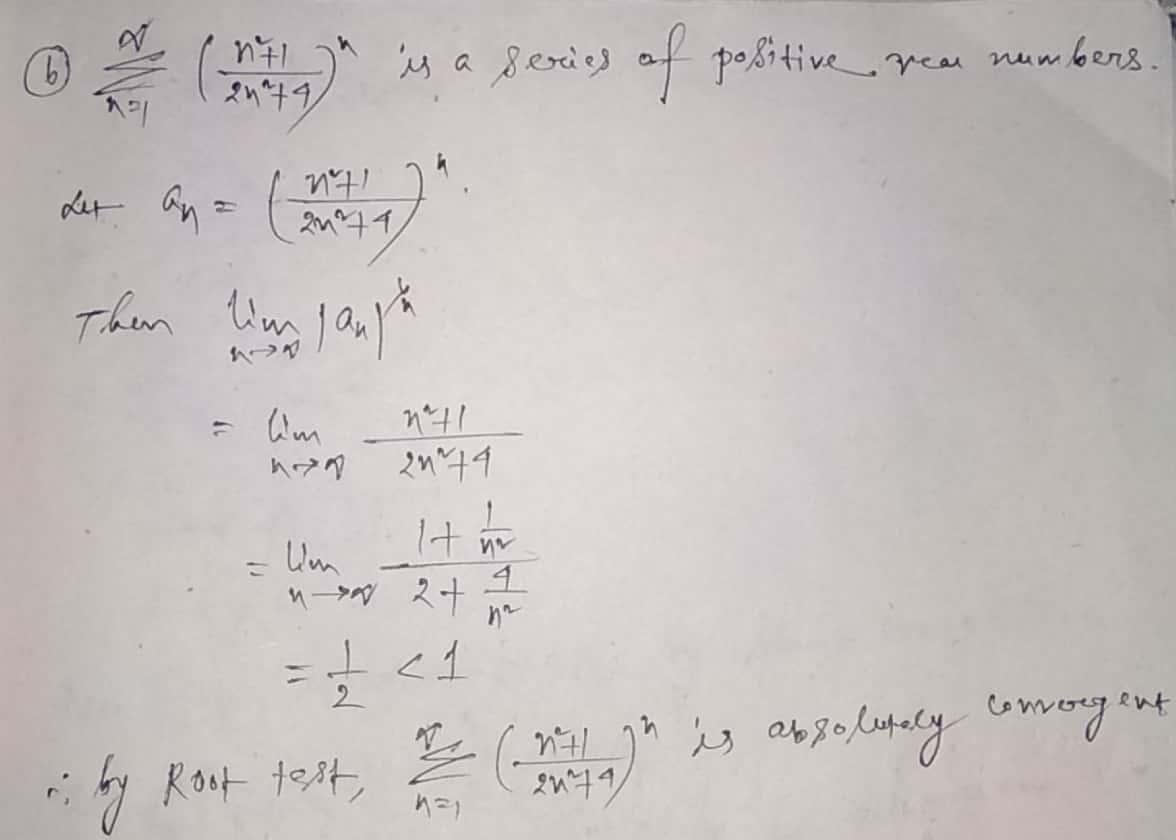 (b) ∑_{n=1}^{∞} ((n²+1)/(2n²+4))^n is a series of positive real numbers.
Let a_n = ((n²+1)/(2n²+4))^n.
Then lim_{n→∞} |a_n|^{1/n}
= lim_{n→∞} (n²+1)/(2n²+4)
= lim_{n→∞} (1 + 1/n²)/(2 + 4/n²)
= 1/2 < 1
∴ by Root test, ∑_{n=1}^{∞} ((n²+1)/(2n²+4))^n is absolutely convergent